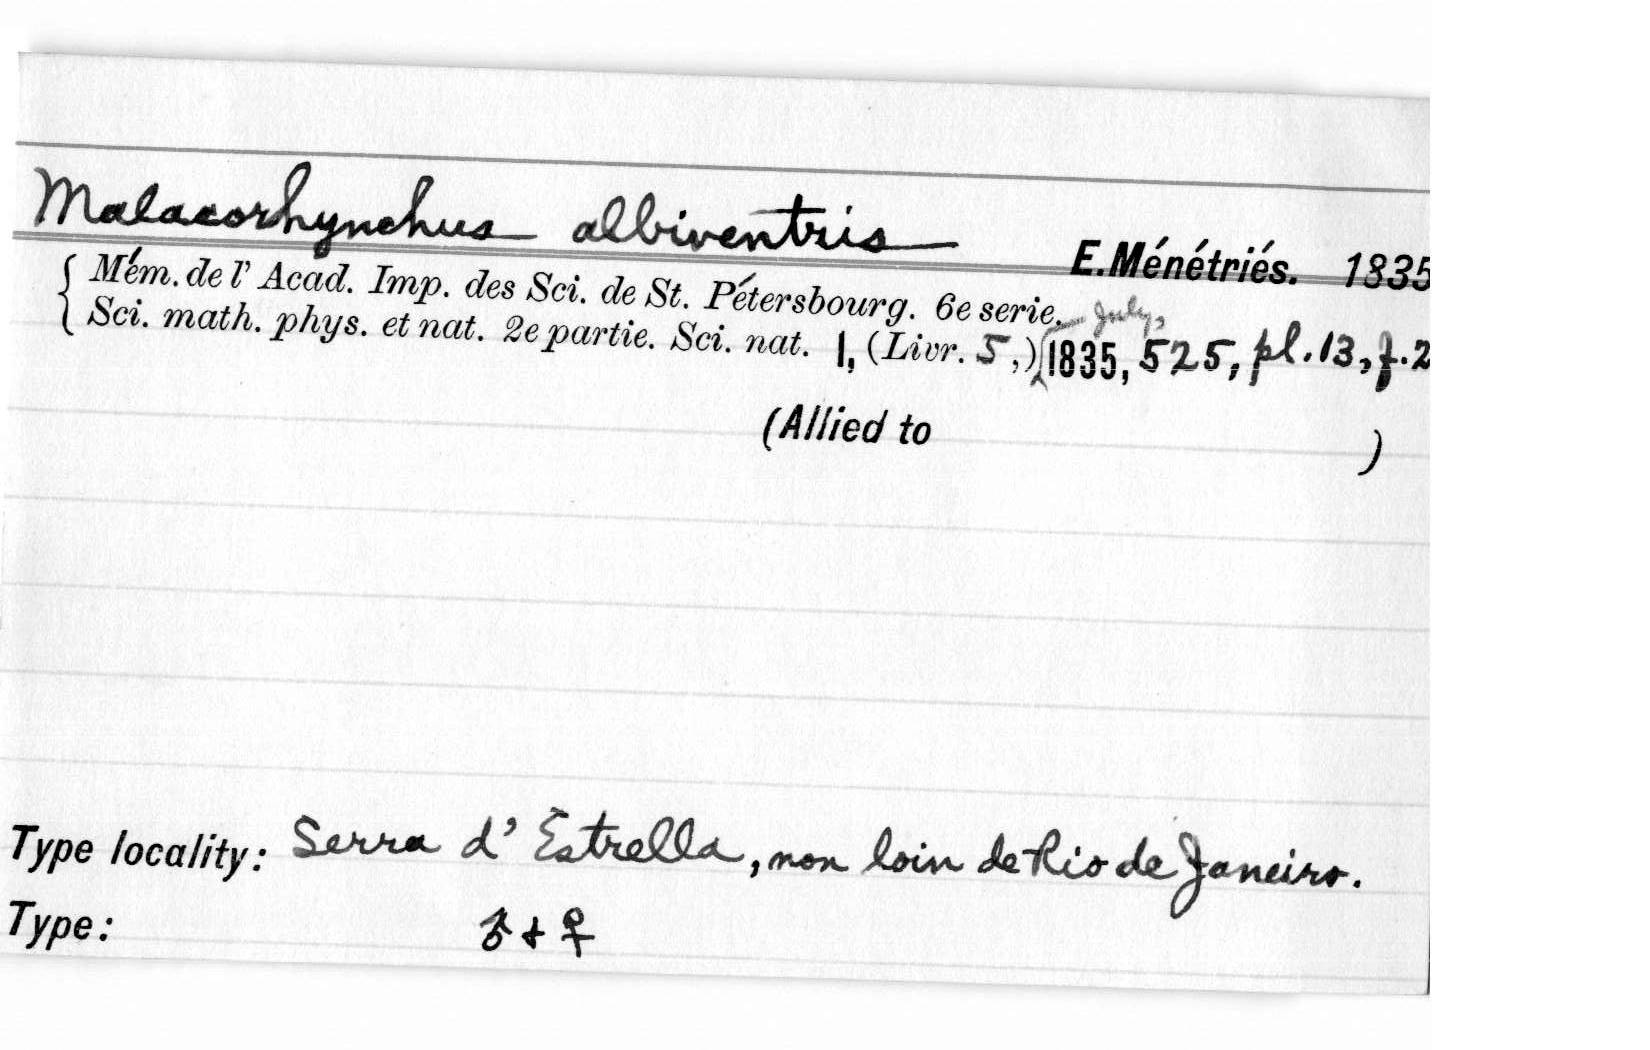 Malacorhynchus albiventris E.Ménétriés. 1835
Mém. de l' Acad. Imp. des Sci. de St. Pétersbourg. 6e serie.
Sci. math. phys. et nat. 2e partie. Sci. nat. 1, (Livr. 5,) July, 1835, 525, pl. 13, f. 2
(Allied to )
Type locality: Serra d' Estrella, non loin de Rio de Janeiro.
Type: ♂ + ♀